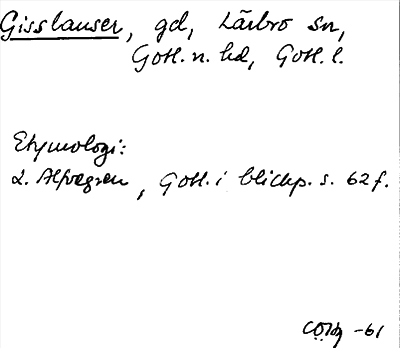 Gisslauser, gd, Lärbro sn,
Gotl. n. hd, Gotl. l.
Etymologi:
L. Alfvegren, Gotl. i blickp. s. 62 f.
-61